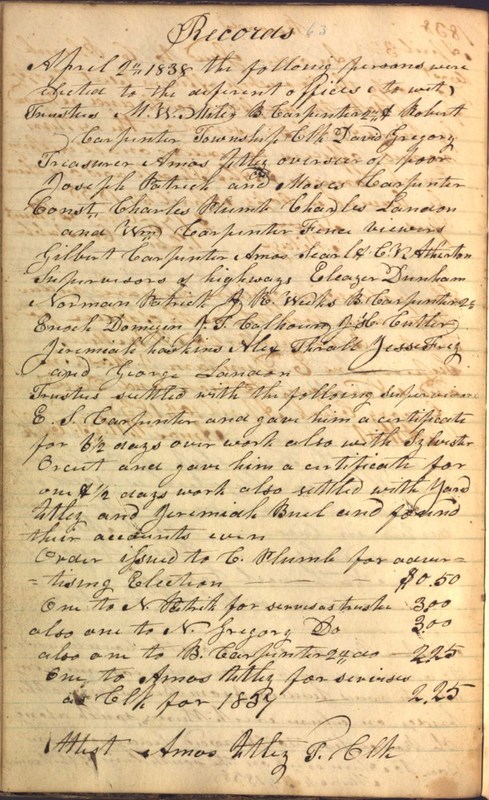 Records 63
April 2nd 1838 the following persons were
elected to the diferent offices (to wit)
Trustees M. W. Utley B. Carpenter 2nd & Robert
Carpenter Township Clk David Gregory
Treasurer Amos Utley overseer of poor
Joseph Patrick and Moses Carpenter
Const, Charles Plumb Charles Landon
and Wm Carpenter Fence viewers
Gilbert Carpenter Amos Searl & C. V. Atherton
Supervisors of highways Eleazer Dunham
Norman Patrick A. R. Weeks B. Carpenter 2nd
Enoch Domigan J. T. Calhoun J. H. Cutler
Jeremiah haskins Alex Thrall Jesse Frey
and George Landon
Trustees settled with the folloing supervisors
E. S. Carpenter and gave him a certificate
for 6 1/2 days over work also with Sylvester
Orcut and gave him a certificate for
one & 1/2 days work also settled with
Utley and Jeremiah Buel and found
their accounts even
Order issued to C. Plumb for adver-
-tising Election $0.50
One to N. Patrik for servises trustee 3.00
also one to N. Gregory Do 3.00
also one to B. Carpenter 2nd do 2.25
One to Amos Utley for servises
as Clk for 1837 2.25
Attest Amos Utley T. Clk